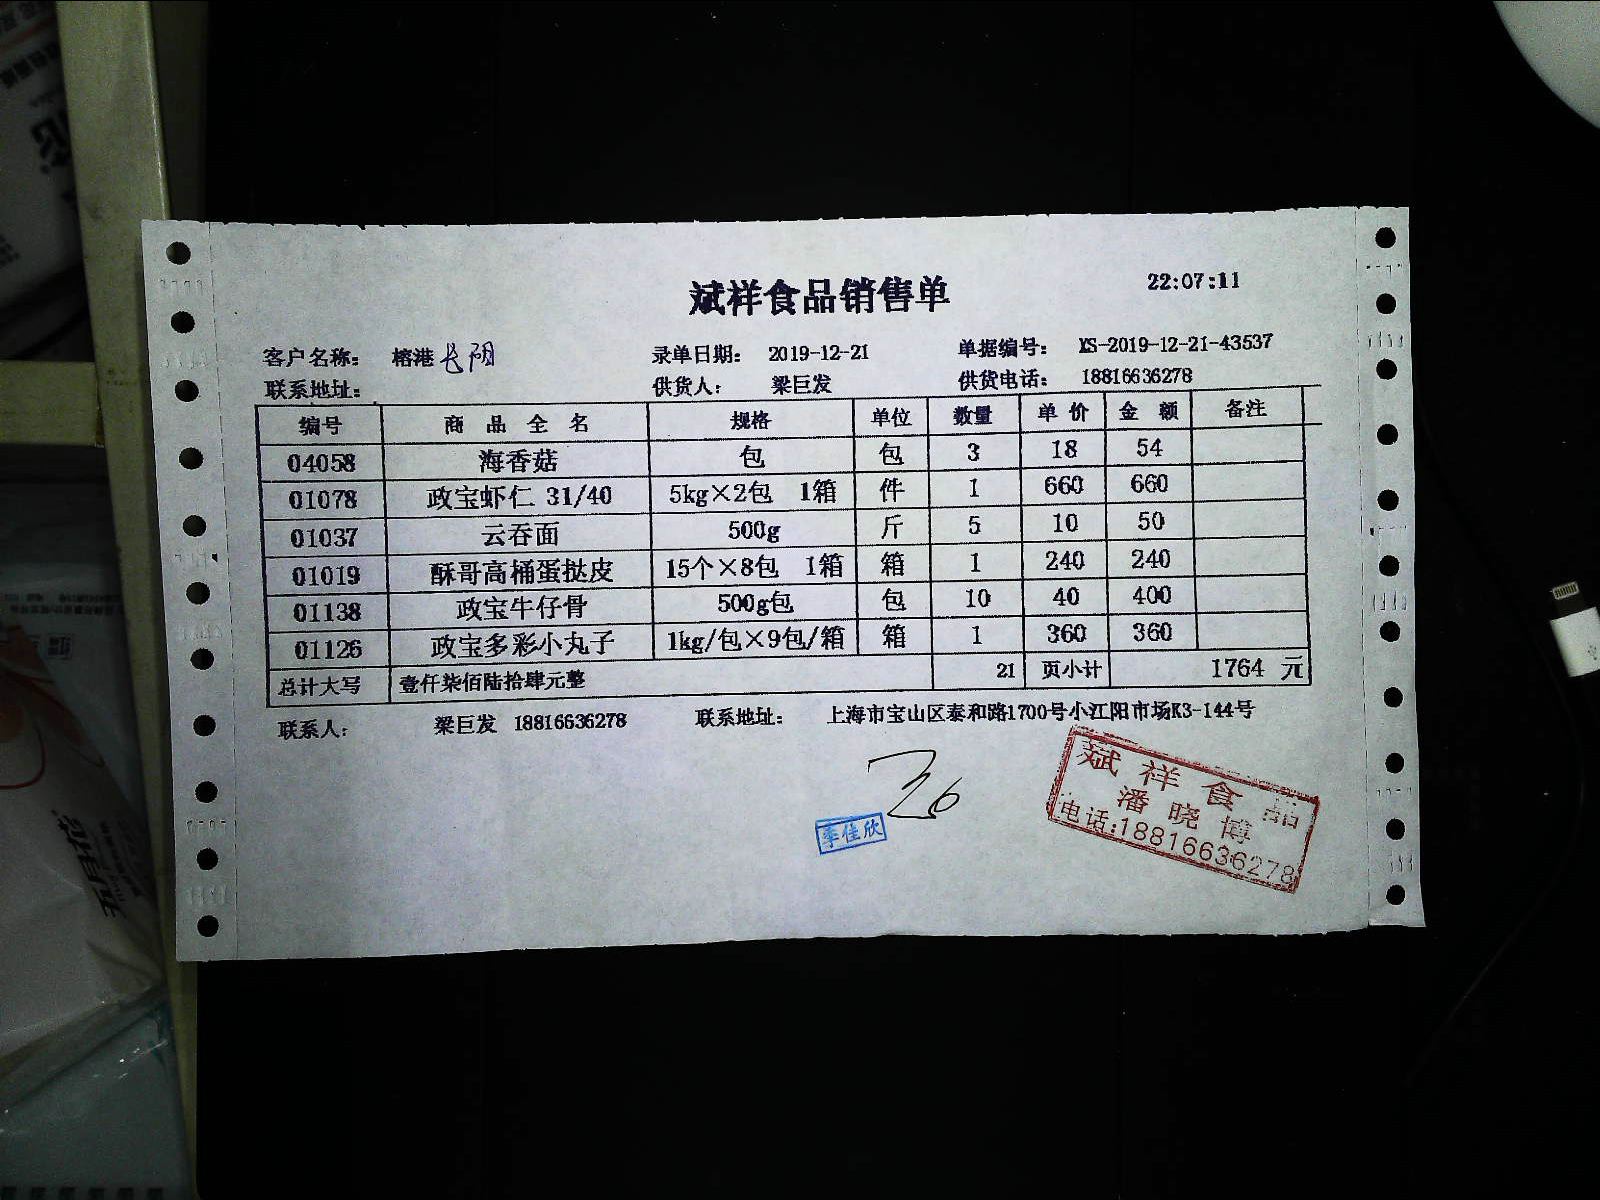 斌祥食品销售单 22:07:11
客户名称: 榕港 长阴 录单日期: 2019-12-21 单据编号: XS-2019-12-21-43537
联系地址: 供货人: 梁巨发 供货电话: 18816636278
编号 商品全名 规格 单位 数量 单价 金额 备注
04058 海香菇 包 包 3 18 54
01078 政宝虾仁 31/40 5kg×2包 1箱 件 1 660 660
01037 云吞面 500g 斤 5 10 50
01019 酥哥高桶蛋挞皮 15个×8包 1箱 箱 1 240 240
01138 政宝牛仔骨 500g包 包 10 40 400
01126 政宝多彩小丸子 1kg/包×9包/箱 箱 1 360 360
总计大写 壹仟柒佰陆拾肆元整 21 页小计 1764 元
联系人: 梁巨发 18816636278 联系地址: 上海市宝山区泰和路1700号小江阳市场K3-144号
斌祥食品
潘晓博
电话:18816636278
李佳欣